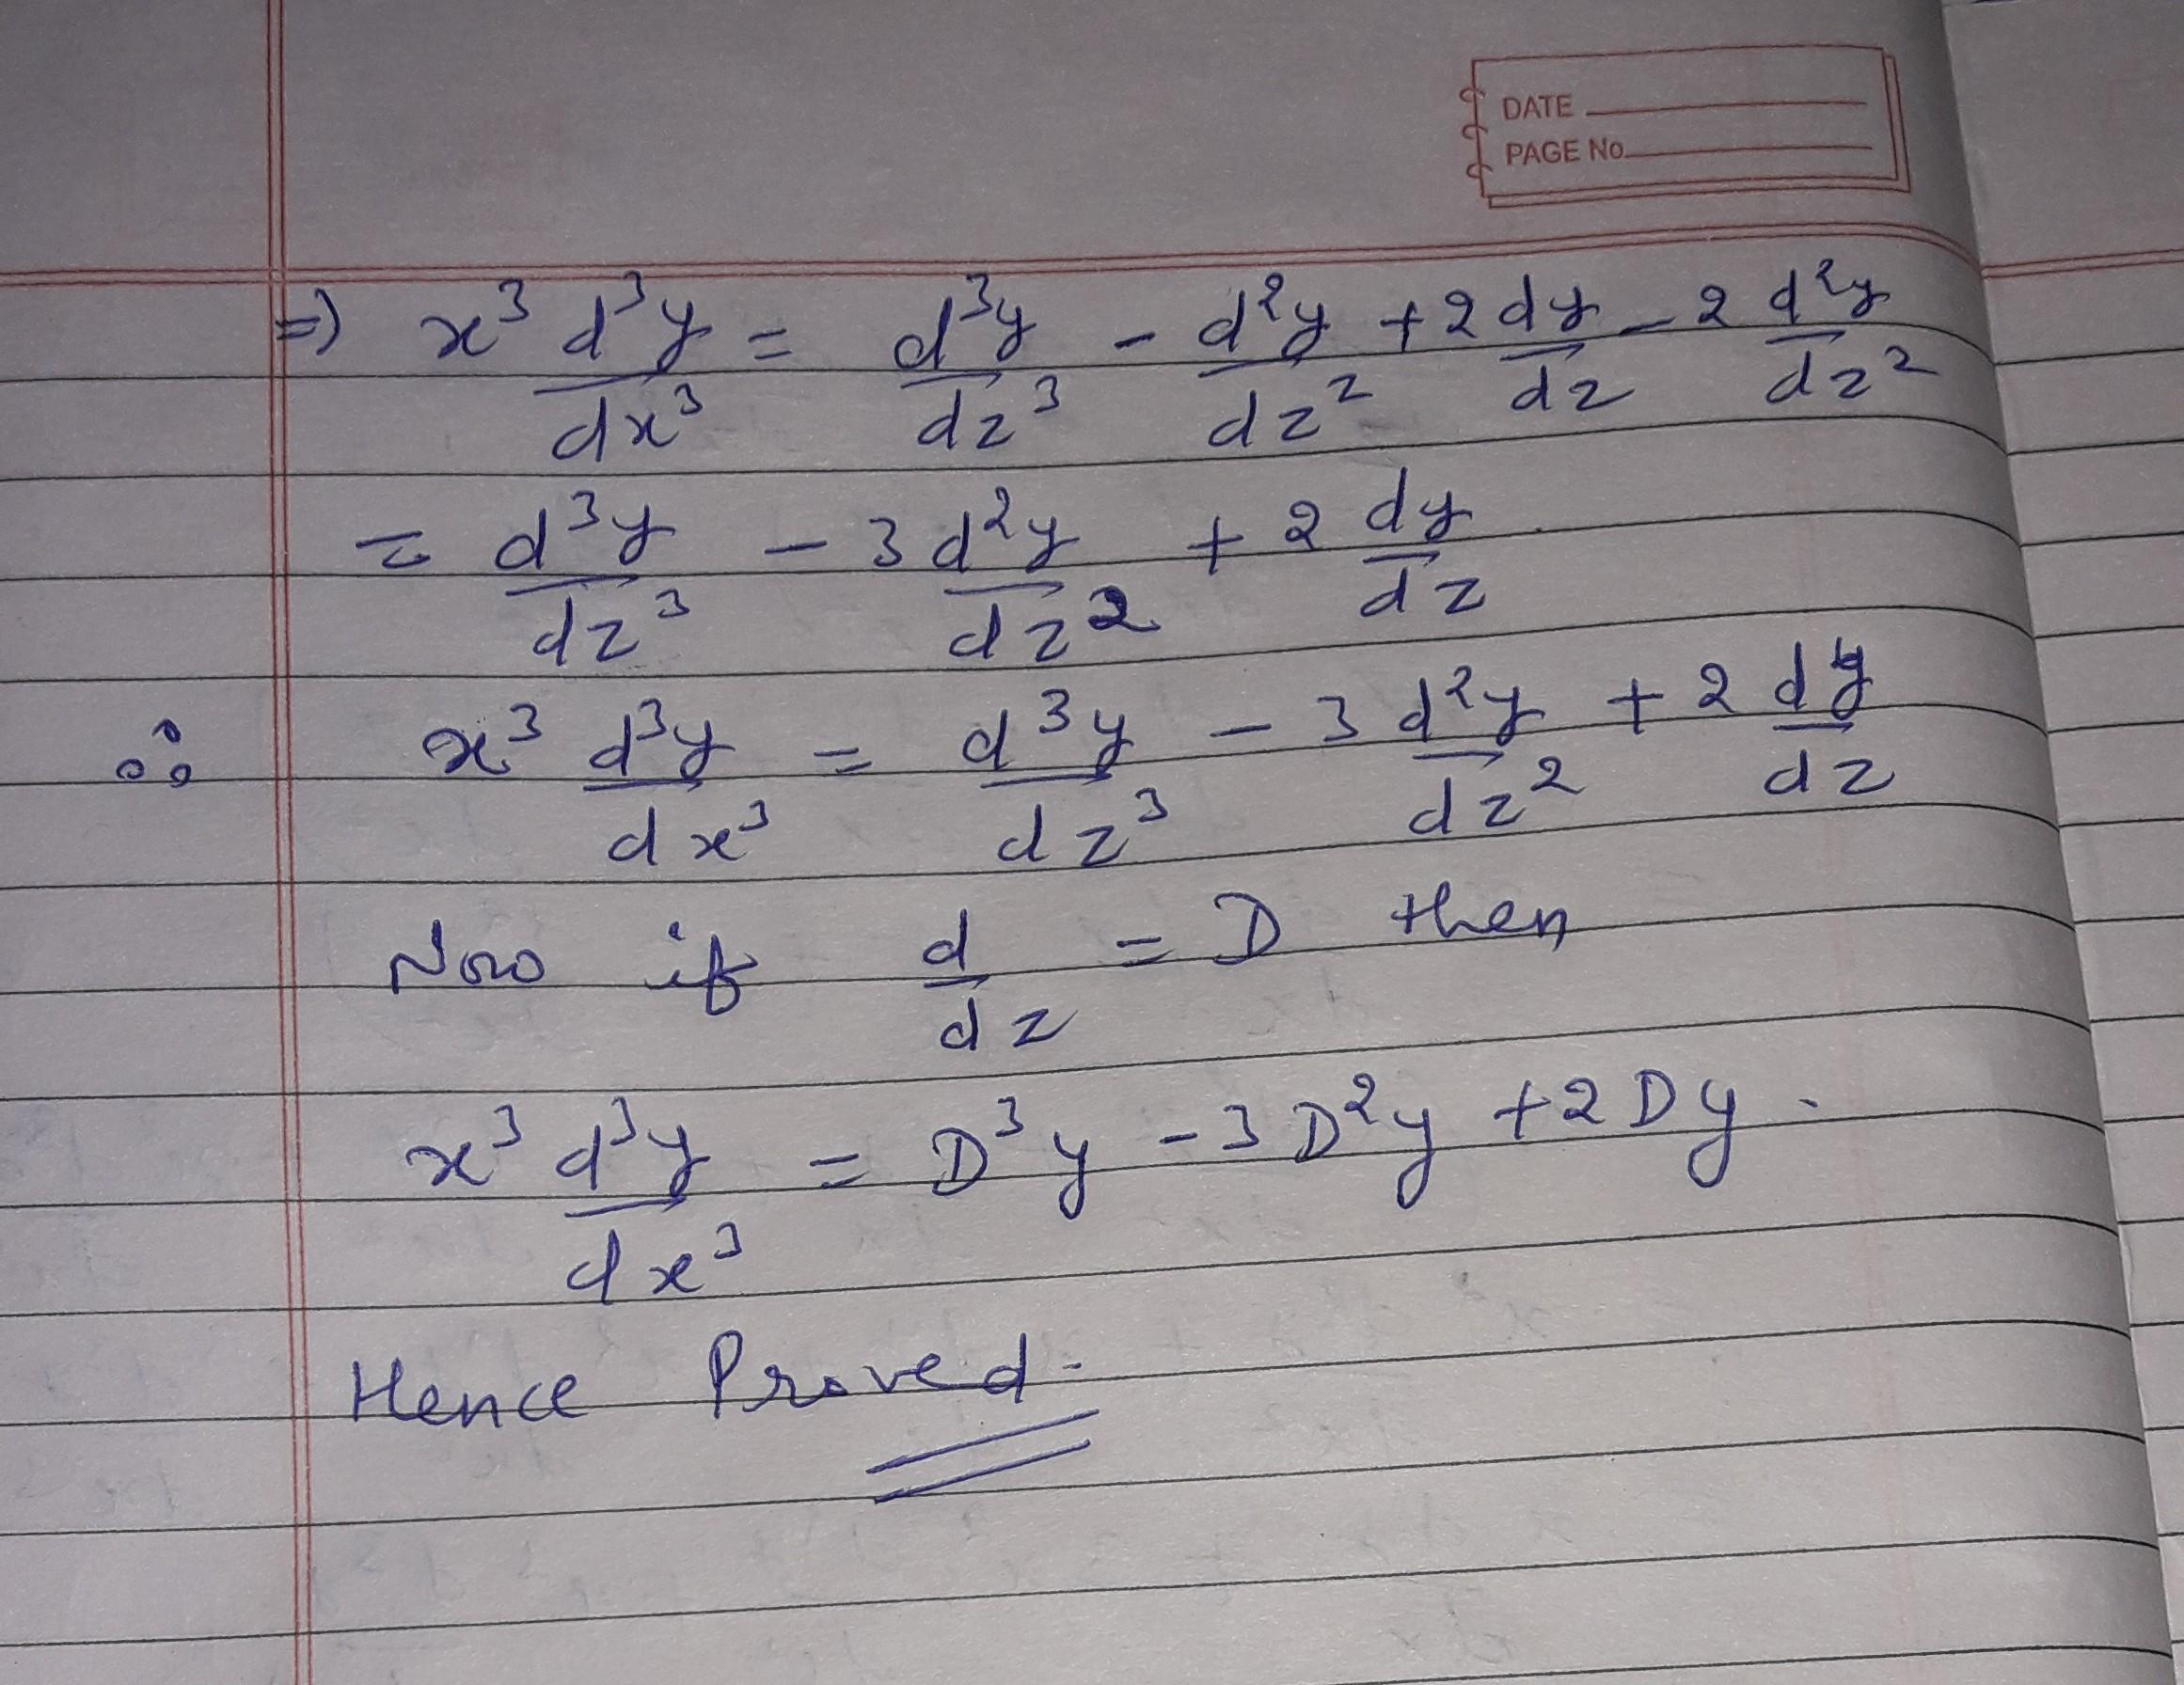 DATE
PAGE No.
⇒ x³ d³y/dx³ = d³y/dz³ - d²y/dz² + 2 dy/dz - 2 d²y/dz²
= d³y/dz³ - 3 d²y/dz² + 2 dy/dz
∴ x³ d³y/dx³ = d³y/dz³ - 3 d²y/dz² + 2 dy/dz
Now if d/dz = D then
x³ d³y/dx³ = D³y - 3D²y + 2Dy.
Hence Proved.